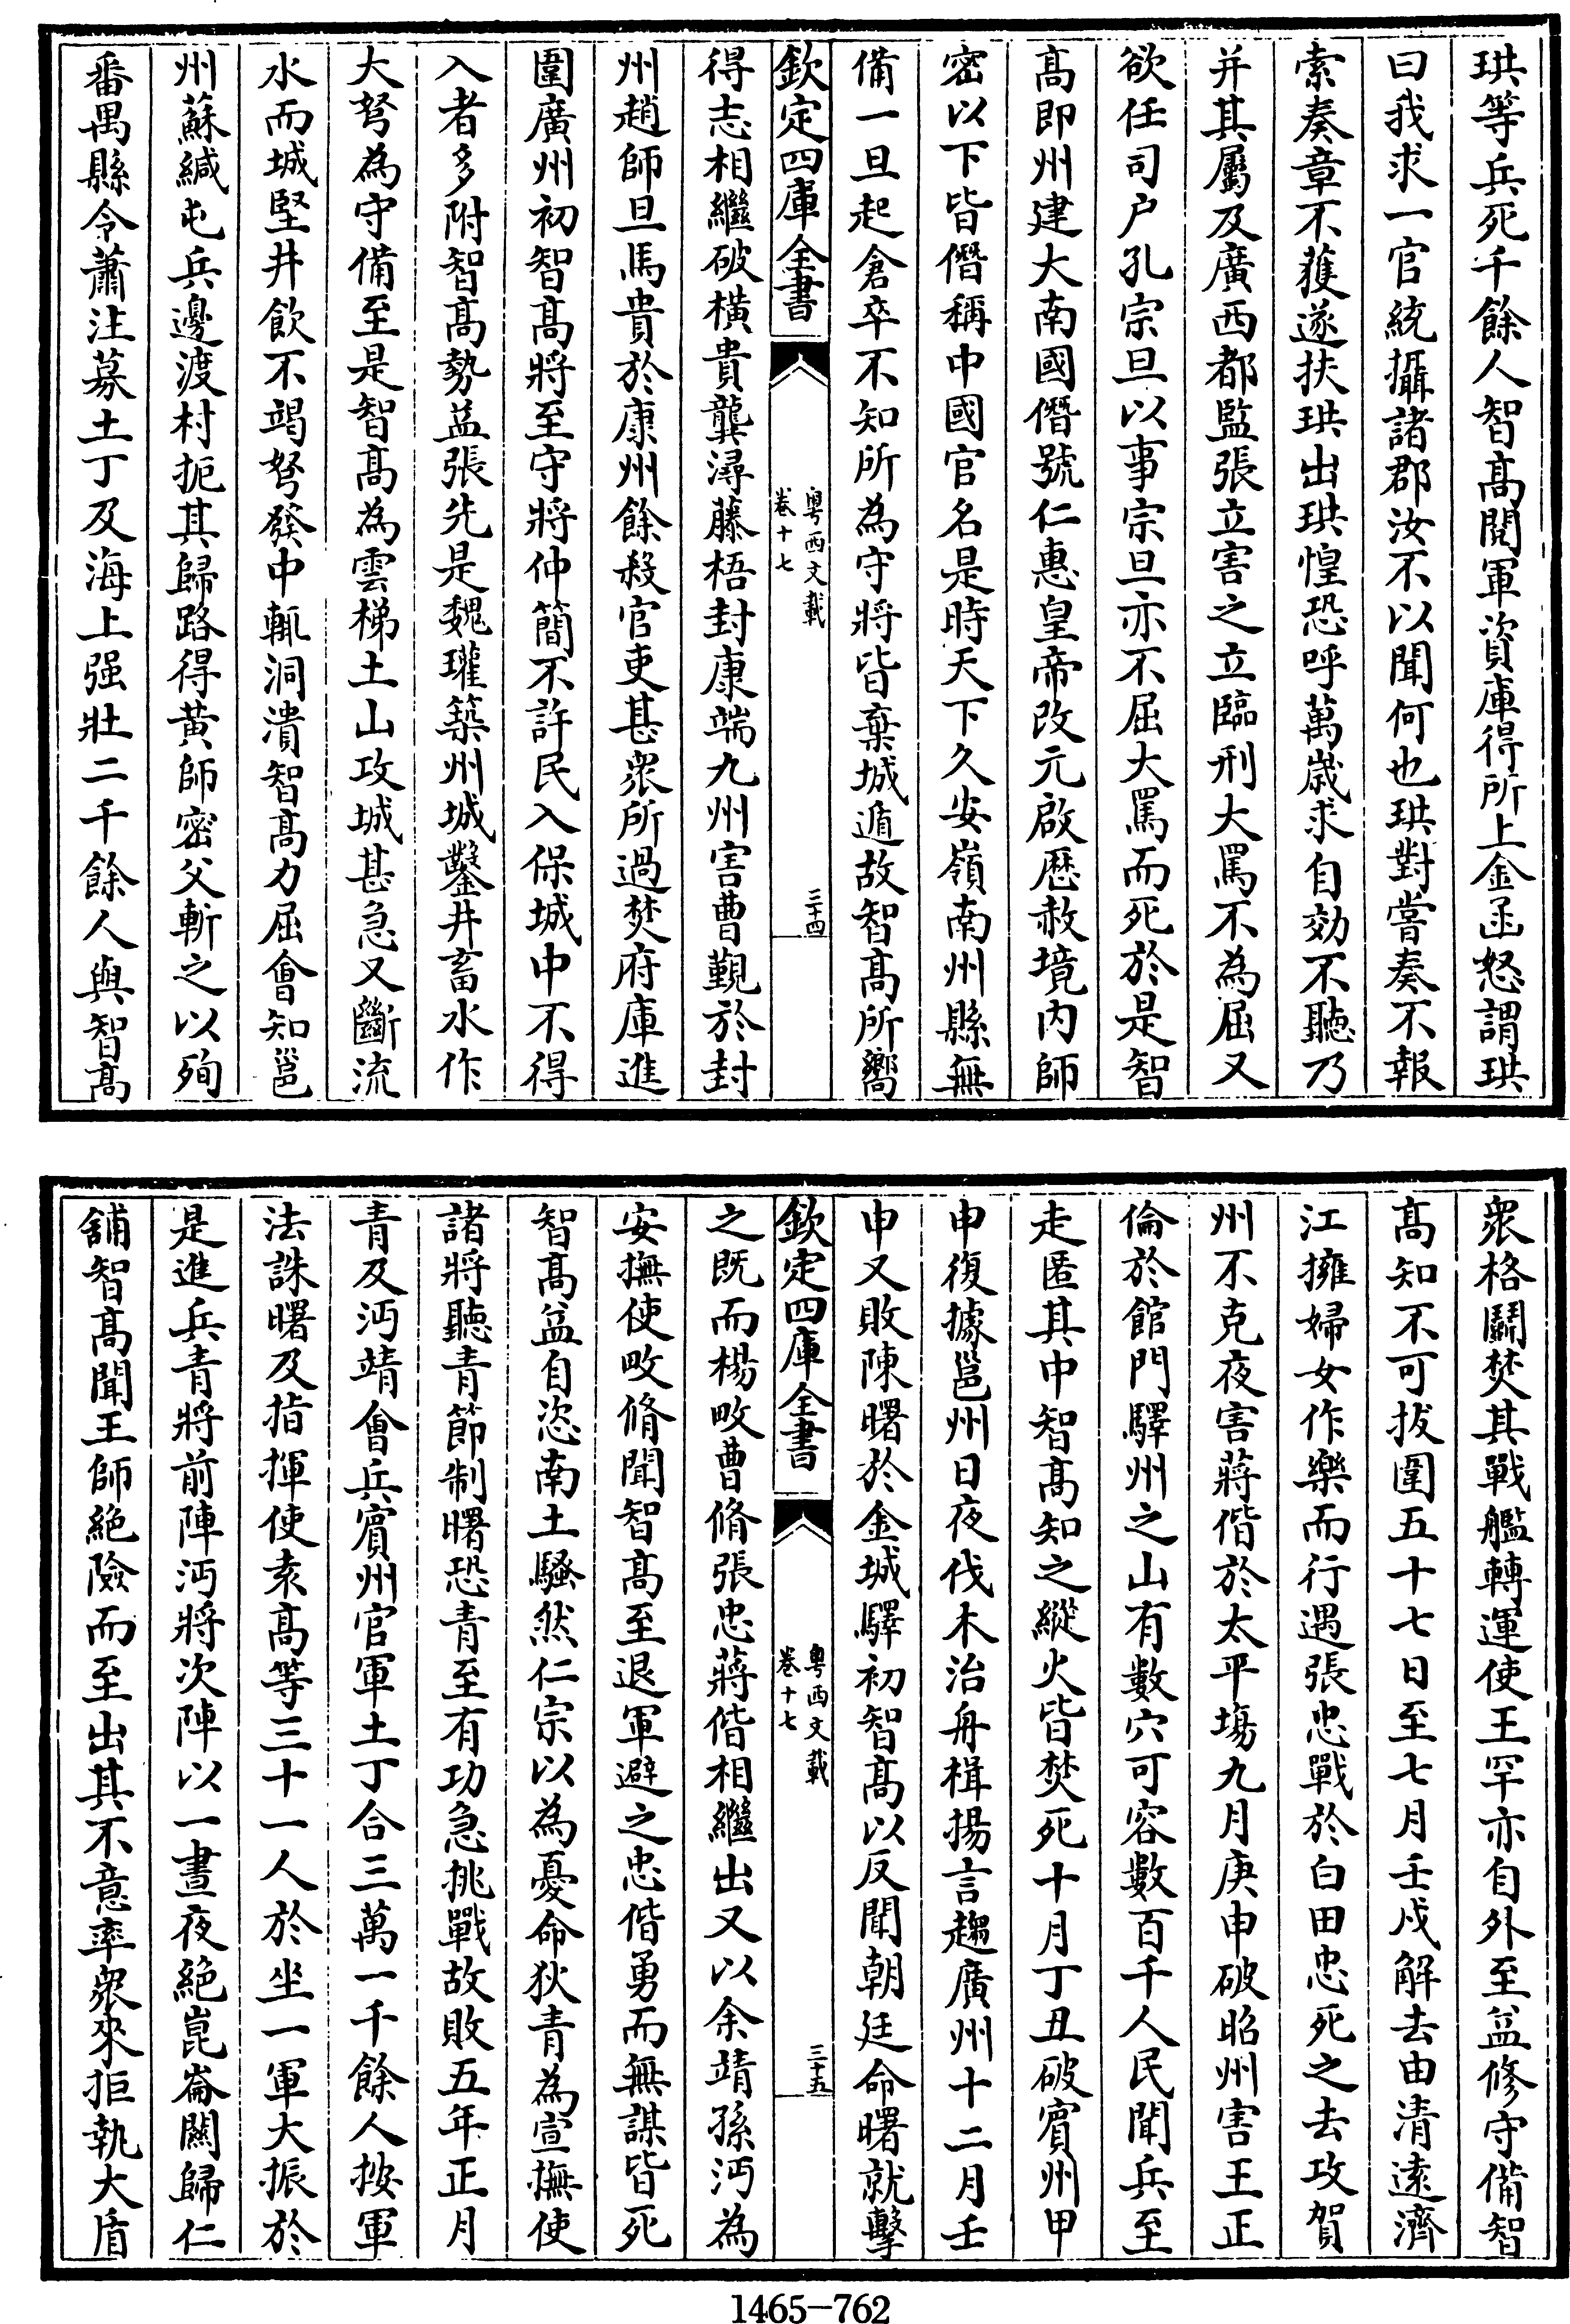 珙等兵死千餘人智髙閱軍資庫得所上金函怒謂珙
曰我求一官統攝諸郡汝不以聞何也珙對嘗奏不報
索奏章不獲遂扶珙出珙惶恐呼萬歲求自効不聽乃
并其屬及廣西都監張立害之立臨刑大罵不為屈又
欲任司户孔宗旦以事宗旦亦不屈大罵而死於是智
髙即州建大南國僭號仁惠皇帝改元啟歴赦境内師
密以下皆僭稱中國官名是時天下久安嶺南州縣無
備一旦起倉卒不知所為守將皆棄城遁故智髙所嚮
欽定四庫全書
粤西文載
卷十七
三十四
得志相繼破横貴龔潯藤梧封康端九州害曹覲於封
州趙師旦馬貴於康州餘殺官吏甚衆所過焚府庫進
圍廣州初智髙將至守將仲簡不許民入保城中不得
入者多附智髙勢益張先是魏瓘築州城鑿井畜水作
大弩為守備至是智髙為雲梯土山攻城甚急又斷流
水而城堅井飲不竭弩發中輒洞潰智髙力屈會知邕
州蘇緘屯兵邊渡村扼其歸路得黄師密父斬之以殉
番禺縣令蕭注募土丁及海上强壯二千餘人與智髙
衆格鬭焚其戰艦轉運使王罕亦自外至益修守備智
髙知不可拔圍五十七日至七月壬戍解去由清逺濟
江擁婦女作樂而行遇張忠戰於白田忠死之去攻賀
州不克夜害蔣偕於太平塲九月庚申破昭州害王正
倫於館門驛州之山有數穴可容數百千人民聞兵至
走匿其中智髙知之縱火皆焚死十月丁丑破賓州甲
申復據邕州日夜伐木治舟楫揚言趨廣州十二月壬
申又敗陳曙於金城驛初智髙以反聞朝廷命曙就擊
欽定四庫全書
粤西文載
卷十七
三十五
之既而楊畋曹脩張忠蔣偕相繼出又以余靖孫沔為
安撫使畋脩聞智髙至退軍避之忠偕勇而無謀皆死
智髙益自恣南土騷然仁宗以為憂命狄青為宣撫使
諸將聽青節制曙恐青至有功急挑戰故敗五年正月
青及沔靖會兵賓州官軍土丁合三萬一千餘人按軍
法誅曙及指揮使袁髙等三十一人於坐一軍大振於
是進兵青將前陣沔將次陣以一晝夜絶崑崙闗歸仁
舖智髙聞王師絶險而至出其不意率衆來拒執大盾
1465-762